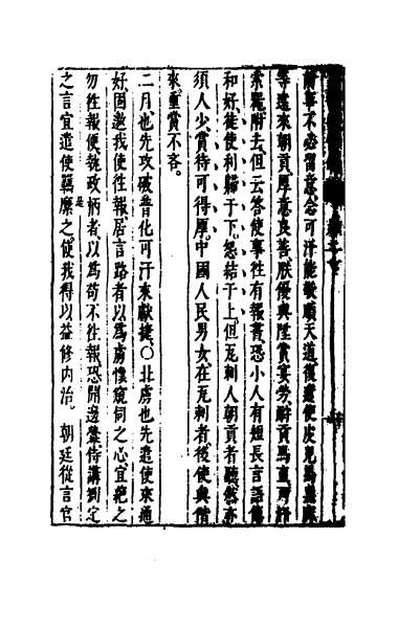 前事不必留意念可汗能敬順天道復遣使皮兒馬黑麻
等遠來朝貢厚意良善朕優與陞賞宴勞辭貢馬直可汗
索 附去但云答使事往有報書恐小人有短長言語傷
和好徒使利歸于下怨結于上但瓦剌人朝貢者聽然亦
須人少賞待可得厚中國人民男女在瓦剌者後使與偕
來重賞不吝。
二月也先攻破普化可汗來獻捷〇北虜也先遣使來通
好因邀我使往報居言路者以為虜懷窺伺之心宜絕之
勿往報便執政柄者以為苟不往報恐開邊釁侍講劉定
之言宜遣使羈縻之使我得以益修內治。朝廷從言官
是